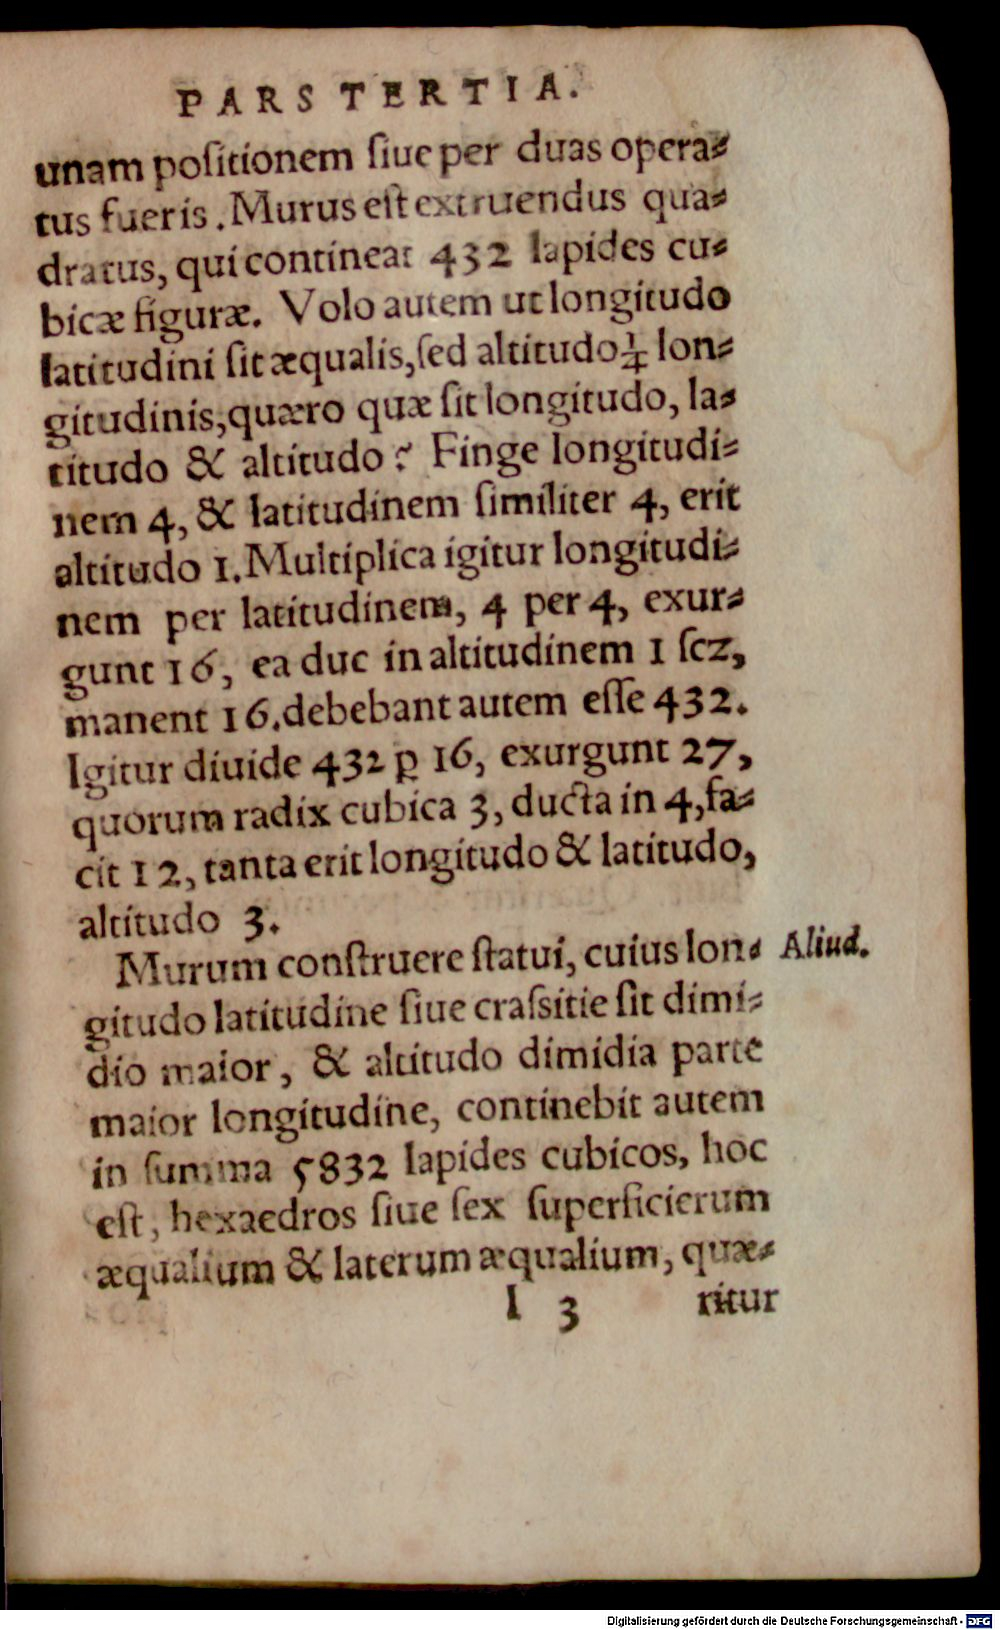 PARS TERTIA.
unam poſitionem ſiue per duas opera⸗
tus fueris. Murus eſt extruendus qua⸗
dratus, qui contineat 432 lapides cu⸗
bicæ figuræ. Volo autem ut longitudo
latitudini ſit æqualis, ſed altitudo ¼ lon⸗
gitudinis, quæro quæ ſit longitudo, la⸗
titudo & altitudo? Finge longitudi⸗
nem 4, & latitudinem ſimiliter 4, erit
altitudo 1. Multiplica igitur longitudi⸗
nem per latitudinem, 4 per 4, exur⸗
gunt 16, ea duc in altitudinem 1 ſcz,
manent 16. debebant autem eſſe 432.
Igitur diuide 432 ꝑ 16, exurgunt 27,
quorum radix cubica 3, ducta in 4, fa⸗
cit 12, tanta erit longitudo & latitudo,
altitudo 3.
Murum conſtruere ſtatui, cuius lon⸗ Aliud.
gitudo latitudine ſiue craſsitie ſit dimi⸗
dio maior, & altitudo dimidia parte
maior longitudine, continebit autem
in ſumma 5832 lapides cubicos, hoc
eſt, hexaedros ſiue ſex ſuperficierum
æqualium & laterum æqualium, quæ⸗
I 3 ritur
Digitalisierung gefördert durch die Deutsche Forschungsgemeinschaft - DFG